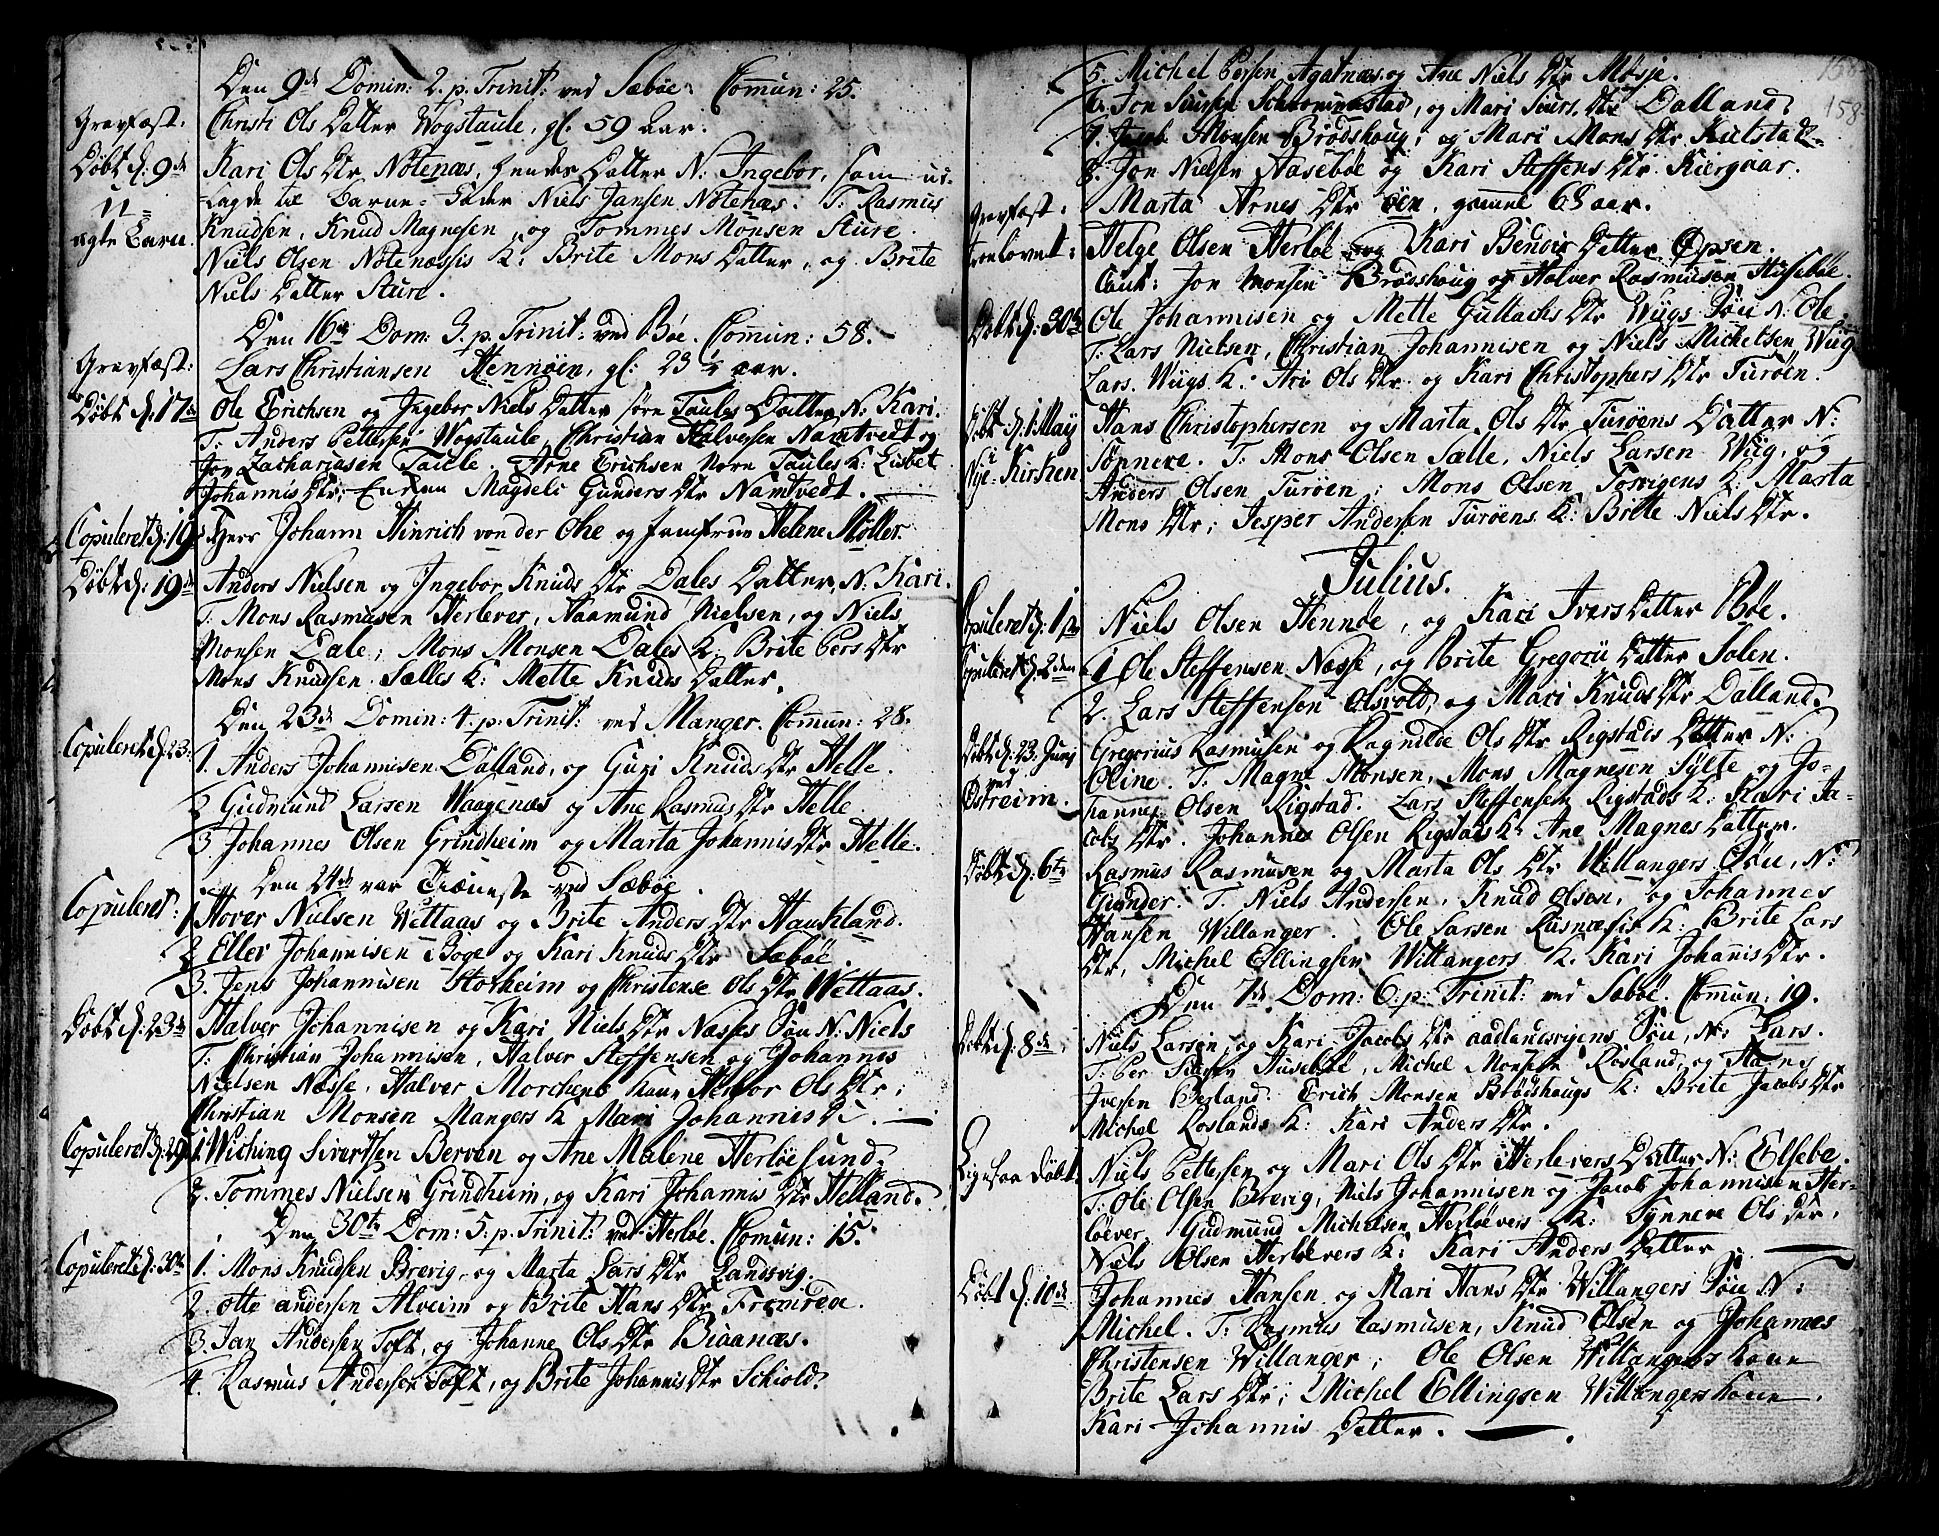 Den 9de Domin: 2. p. Trinit: ved Sæbøe. Comun: 25.
Gravfæst: Christi Ols Datter Wogstaule, gl. 59 Aar.
Døbt d: 9de Kari Ols Dtr Notenæs, hendes Datter N: Ingebor, som ud-
U- lagde til Barne-Fader Niels Jansen Notenæs. T: Rasmus
ægte Barn. Knudsen, Knud Magnesen, og Tommes Monsen Sture.
Niels Olsen Notenæssis K: Brite Mons Datter, og Brite
Niels Datter Sture.
Den 16de Dom: 3. p. Trinit: ved Bøe. Comun: 58.
Gravfæst: Lars Christiansen Hennøen, gl: 23 1/2 aar.
Døbt d: 17de Ole Erichsen og Ingebor Niels Datter søre Taules Datter N: Kari.
T: Anders Pettersen Wogstaule, Christian Halversen Namtvedt og
Jon Zachariasen Taule. Arne Erichsen Nore Taules K: Lisbet
Johannis Dtr; Magdeli Gunders Dtr Namtvedt.
Copuleret d: 19 Herr Johann Hinrich von der Ohe og Jomfrue Helene Møller.
Døbt d: 19de Anders Nielsen og Ingebor Knuds Dtr Dales Datter, N: Kari.
T: Mons Rasmusen Herlever, Aamund Nielsen, og Niels
Monsen Dale; Mons Monsen Dales K: Brite Pers Dtr
Mons Knudsen Sælles K: Mette Knuds Datter.
Den 23de Domin: 4. p. Trinit: ved Manger. Comun: 28.
Copuleret d: 23: 1. Anders Johannisen Dalland, og Guri Knuds Dtr Helle.
2 Gudmund Larsen Waagenæs og Ane Rasmus Dtr Helle.
3. Johannes Olsen Grindheim og Marta Johannis Dtr Helle.
Den 24de var ved Sæbøe.
Copuleret: 1 Hover Nielsen Wettaas og Brite Anders Dtr Hautsland.
2 Eller Johannisen Boge og Kari Knuds Dtr Sæbøe.
3. Jens Johannisen Storheim og Christense Ols Dtr Wettaas.
Døbt d: 23de Halver Johannisen og Kari Niels Dtr Næsses Søn N: Niels
T: Christian Johannisen, Halver Steffensen og Johannes
Nielsen Næsse, Halver Morchens Kone Ols Dtr;
Christian Monsen Mangers K Mari Johannis D:
Copuleret d: 29 1. Wiching Sivertsen Berven og Ane Malene Herløesund.
2. Tommes Nielsen Grindheim, og Kari Johannis Dtr Helland.
Den 30te Dom: 5. p. Trinit: ved Herløe. Comun: 15.
Copuleret d: 30te 1. Mons Knudsen Brevig, og Marta Lars Dtr Landsvig.
2. Otte Andersen Alveim og Brite Hans Dtr Fremrede.
3. Jan Andersen Toft, og Johanne Ols Dtr Biaanæs.
4. Rasmus Andersen Toft, og Brite Johannis Dtr Schiold.
158
158
5. Michel Persen Agatnæs og Ane Niels Dtr Møsje.
6. Jon Schrommestad, og Mari Siurs Dtr Dalland.
7. Jacob Monsen Brødshoug; og Mari Mons Dtr Kielstad
8. Jon Nielsen Aasebøe og Kari Steffens Dtr Kiergaar.
Gravfæst: Marta Arnes Dtr øen, gamme 68 aar.
Troelovet: Helge Olsen Herløe og Kari Datter Opsen.
Caut: Jon Monsen Brødshoug og Halver Rasmusen Husebøe.
Døbt d: 30te Ole Johannisen og Mette Gullachs Dtr Wiigs Søn N: Ole.
T: Lars Nielsen, Christian Johannisen og Niels Michelsen Wiig
Lars Wiigs K: Ari Ols Dtr og Kari Christophers Dtr Turøen.
Døbt d: 1 May Hans Christophersen og Marta Ols Dtr Turøens Datter N:
i Nye-Kirchen Sønneve. T: Mons Olsen Sælle, Niels Larsen Wiig, og
Anders Olsen Turøen; Mons Olsen Torvigens K: Marta
Mons Dtr; Jesper Andersen Turøens K: Brite Niels Dtr.
Julius.
Copuleret d: 1te Niels Olsen Hennøe, og Kari Ivers Datter Bøe.
Copuleret d: 2den 1 Ole Steffensen Næsse, og Brite Gregorii Datter Solen.
2. Lars Steffensen Olsvold, og Mari Knuds Dtr Dalland.
Døbt d: 23 Junj Gregorius Rasmusen og Ragnilde Ols Dtr Rigstads Datter N:
ved Oline. T: Magne Monsen, Mons Magnesen Sylte og Jo-
Ostreim. hannes Olsen Rigstad. Lars Steffensen Rigstads K: Kari Ja-
cobs Dtr. Johannes Olsen Rigstads K: Ane Magnes Datter.
Døbt d: 6te Rasmus Rasmusen og Marta Ols Dtr Willangers Søn, N:
Giunder. T: Niels Andersen, Knud Olsen, og Johannes
Hansen Willanger. Ole Larsen Rosnæsis K: Brite Lars
Dtr, Michel Ellingsen Willangers K: Kari Johannis Dtr.
Den 7de Dom: 6. p: Trinit: ved Sæbøe. Comun: 19.
Døbt d: 8de Niels Larsen og Kari Jacobs Dtr aadlandsvigens Søn, N: Lars.
T: Per Husebøe, Michel Monsen Rosland, og Hans
Iversen Berland. Erich Monsen Brødshougs K: Brite Jacobs Dtr
Michel Roslands K: Kari Anders Dtr.
Ligesaa Døbt Niels Pettersen og Mari Ols Dtr Herlevers Datter N: Elsebe.
T: Ole Olsen Brevig, Niels Johannisen og Jacob Johannisen Her-
løever. Gudmund Michelsen Herløevers K: Synneve Ols Dtr.
Niels Olsen Herløevers K: Kari Anders Datter
Døbt d: 10de Johannes Hansen og Mari Hans Dtr Willangers Søn N:
Michel. T: Rasmus Rasmusen, Knud Olsen og Johannes
Christensen Willanger; Ole Olsen Willangers Kone
Brite Lars Dtr; Michel Ellingsen Willangers Kone
Kari Johannis Datter.